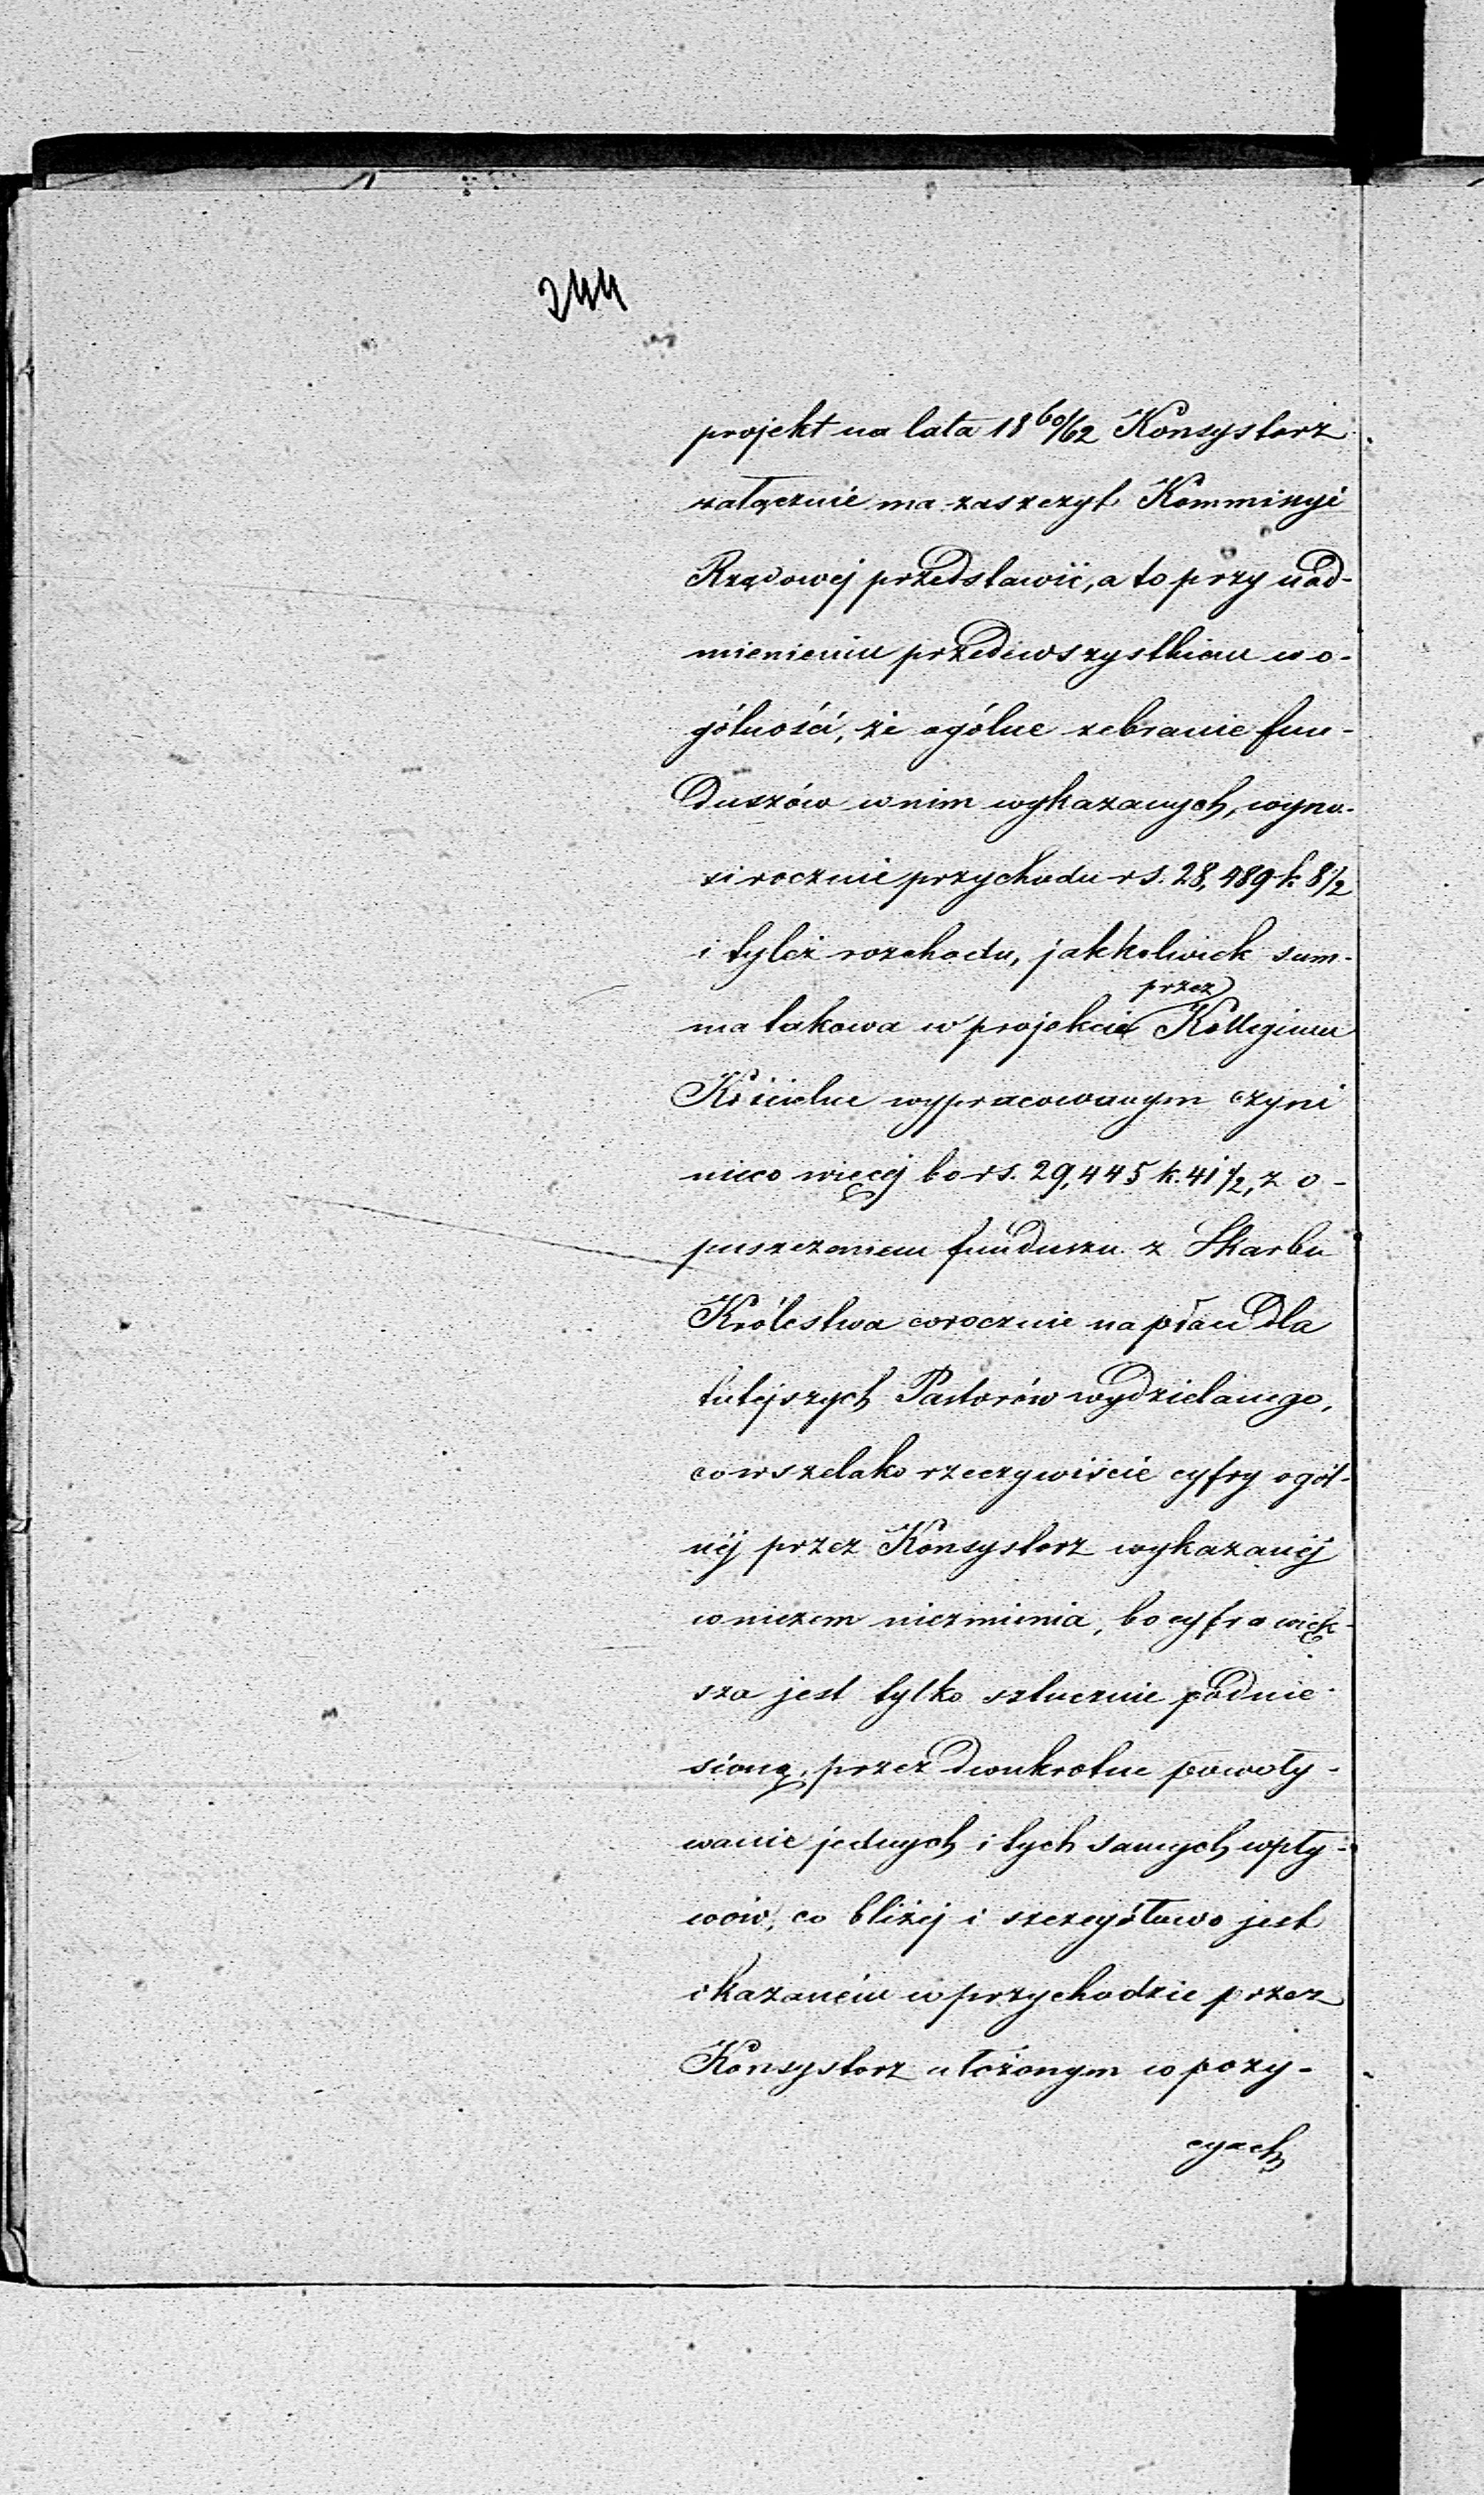 244
projekt na lata 18 60/62 Konsystorz
załącznie ma zaszczyt Kommissyi
Rządowej przedstawić, a to przy nad-
mienieniu przedewszystkiem w o-
gólności, że ogólne zebranie fun-
duszów w nim wykazanych, wyno-
si rocznie przychodu rs. 28,489 k. 8 1/2
i tyleż rozchodu, jakkolwiek sum-
przez
ma takowa w projekcie Kollegium
Kościelne wypracowanym czyni
nieco więcej bo rs. 29,445 k. 41 1/2, z o-
puszczeniem funduszu z Skarbu
Królestwa corocznie na płace dla
tutejszych Pastorów wydzielanego,
co wszelako rzeczywiście cyfry ogól-
néj przez Konsystorz wykazanéj
w niczem niezmienia, bo cyfra więk-
sza jest tylko sztucznie podnie-
sioną, przez dwukrotne powoły-
wanie jednych i tych samych wpły-
wów, co bliżéj i szczegółowo jest
wykazaném w przychodzie przez
Konsystorz ułożonym w pozy-
cyach